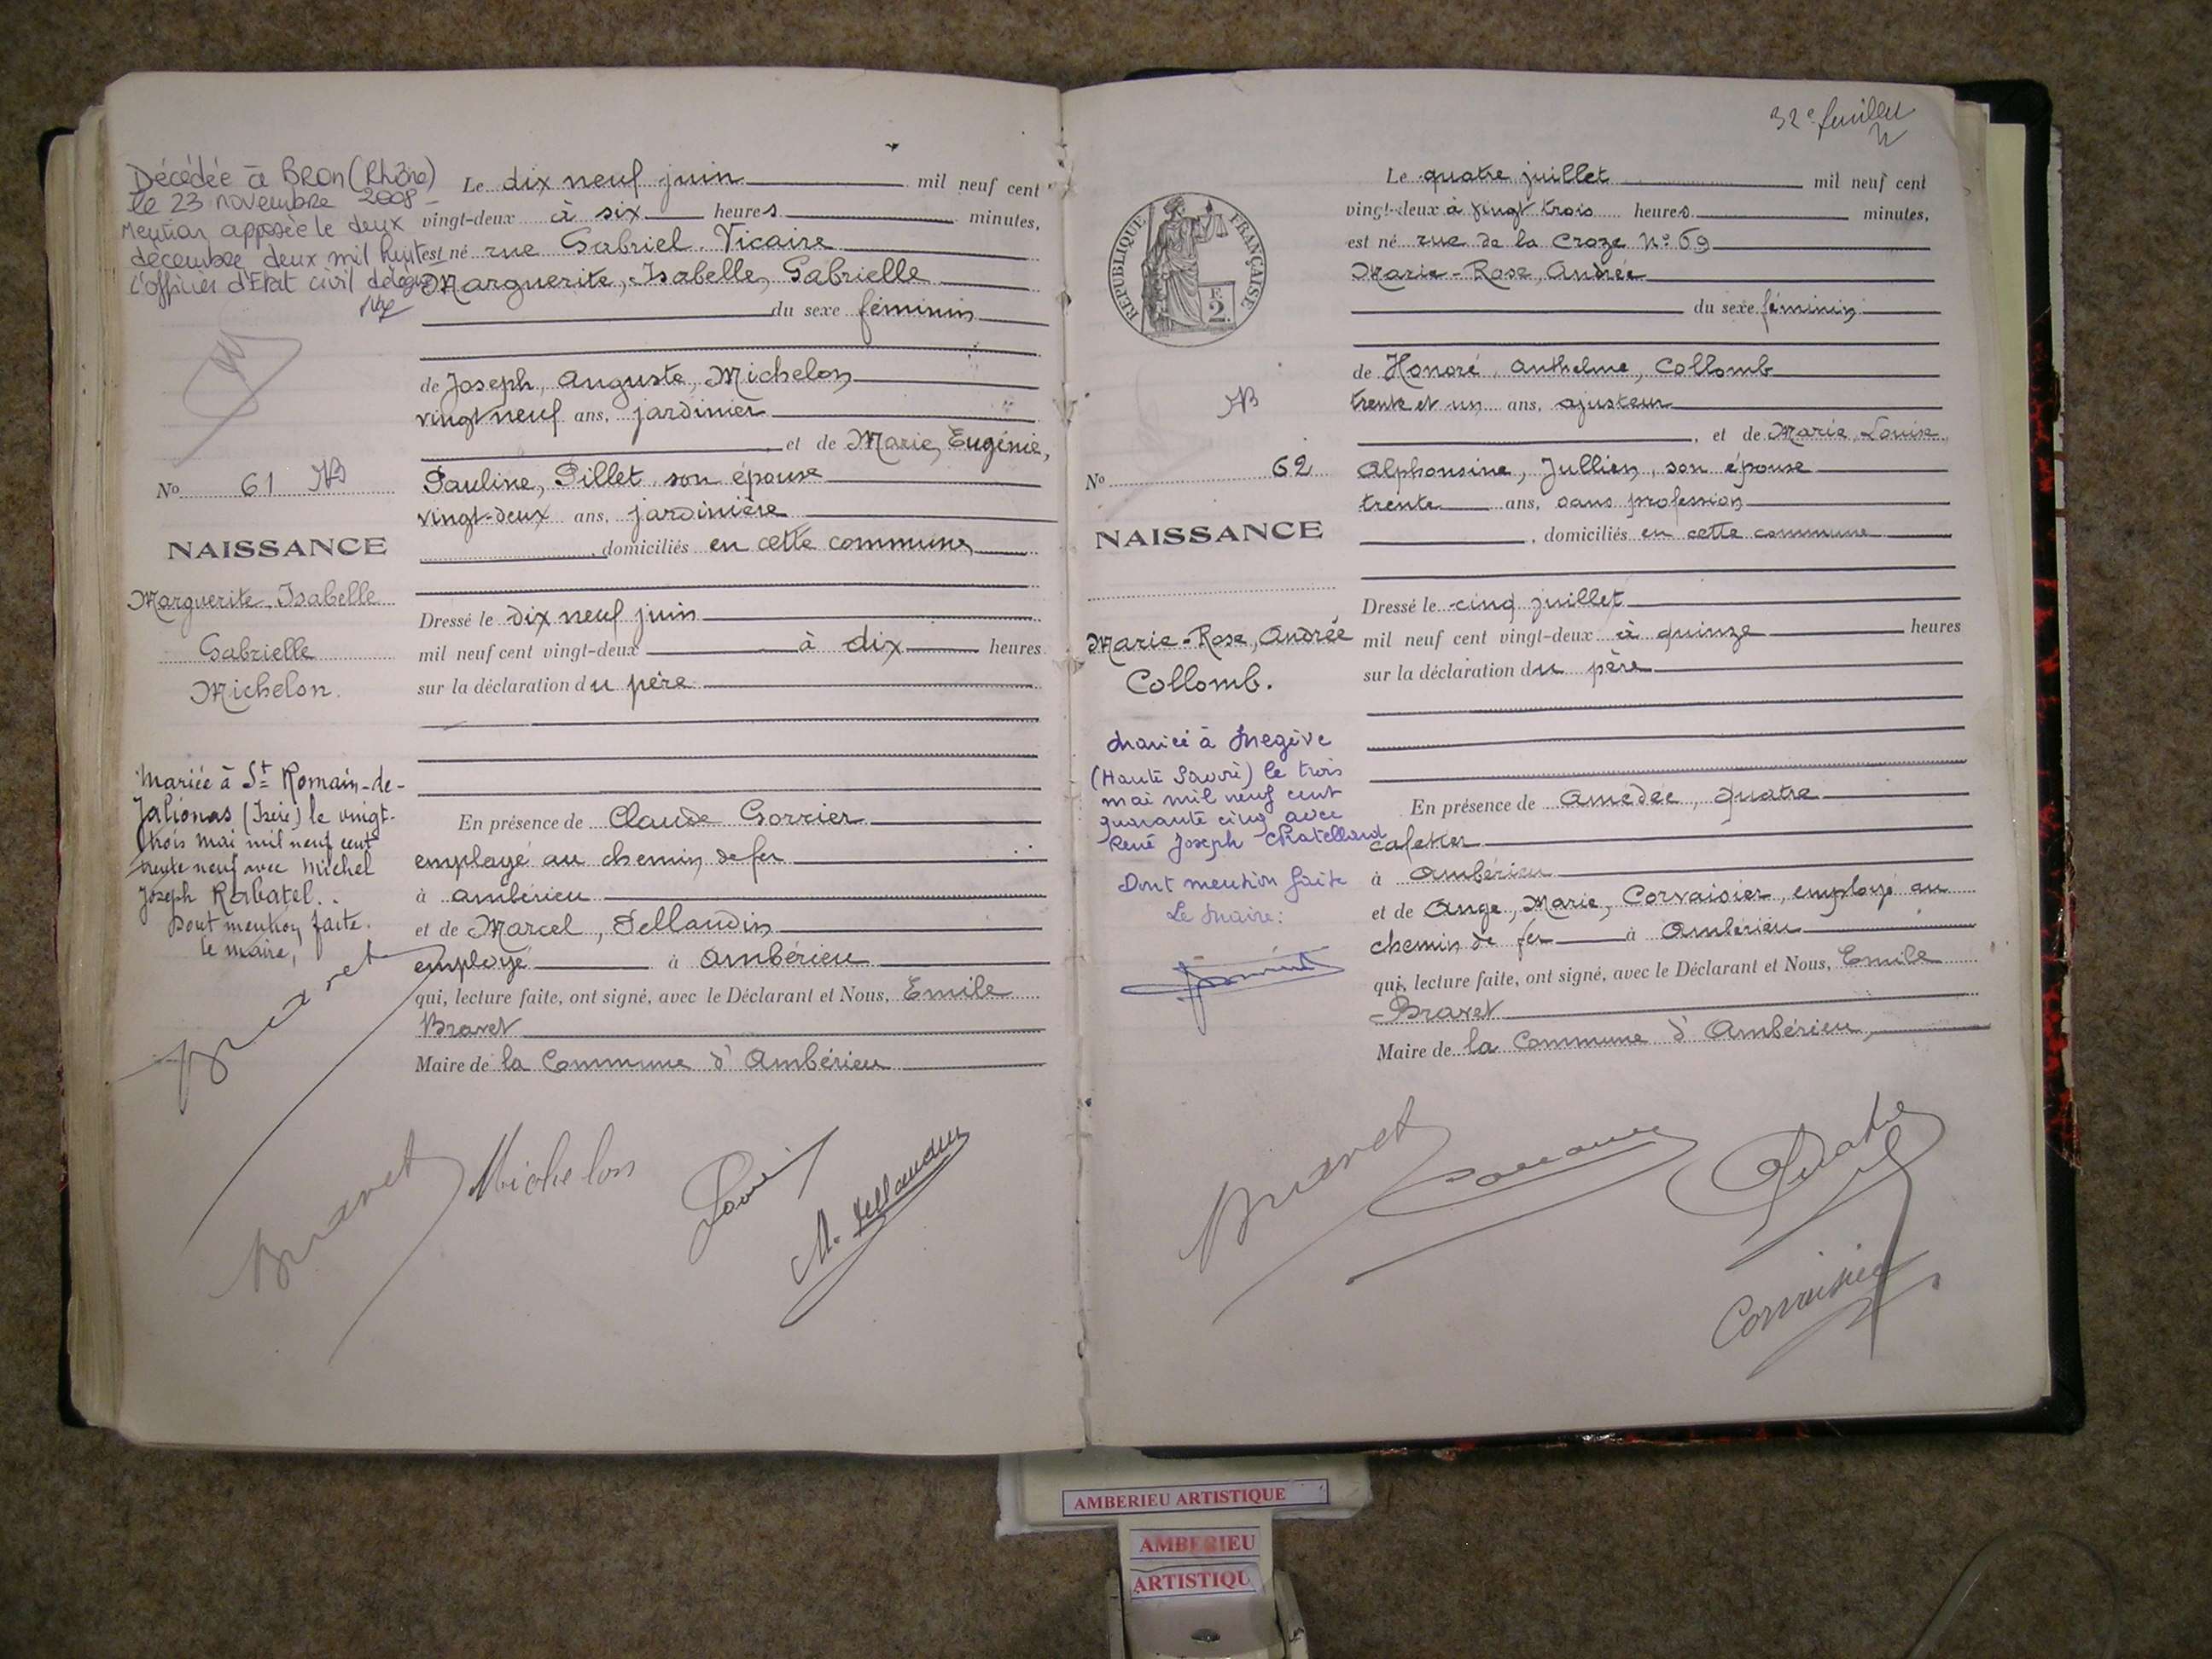 Décédée à BRON (Rhône)
le 23 novembre 2008
Mention apposée le deux
décembre deux mil huit
L'officier d'Etat civil délégué
No 61
NAISSANCE
Marguerite, Isabelle
Gabrielle
Michelon.
Mariée à St Romain-de-
Jalionas (Isère) le vingt-
trois mai mil neuf cent
trente neuf avec Michel
Joseph Rabatel.
Dont mention faite.
le maire,
Bravet
Le dix neuf juin mil neuf cent
vingt-deux à six heures minutes,
est né rue Gabriel Vicaire
Marguerite, Isabelle, Gabrielle
du sexe féminin
de Joseph, Auguste, Michelon
vingt neuf ans, jardinier
et de Marie, Eugénie,
Pauline, Pillet son épouse
vingt-deux ans, jardinière
domiciliés en cette commune
Dressé le dix neuf juin
mil neuf cent vingt-deux à dix heures
sur la déclaration du père
En présence de Claude Gorrier
employé au chemin de fer
à Ambérieu
et de Marcel, Pellaudin
employé à Ambérieu
qui, lecture faite, ont signé, avec le Déclarant et Nous, Emile
Bravet
Maire de la Commune d'Ambérieu
Bravet Michelon
32e feuillet
RÉPUBLIQUE FRANÇAISE
F. 2.
No 62
NAISSANCE
Marie-Rose, Andrée
Collomb.
Mariée à Megève
(Haute Savoie) le trois
mai mil neuf cent
quarante cinq avec
René Joseph Chatelland
Dont mention faite
Le Maire:
Le quatre juillet mil neuf cent
vingt-deux à vingt trois heures minutes,
est né rue de la Croze No 69
Marie-Rose, Andrée
du sexe féminin
de Honoré, Anthelme, Collomb
trente et un ans, ajusteur
, et de Marie, Louise,
Alphonsine, Jullien, son épouse
trente ans, sans profession
, domiciliés en cette commune
Dressé le cinq juillet
mil neuf cent vingt-deux à quinze heures
sur la déclaration du père
En présence de Amédée, Quatre
cafetier
à Ambérieu
et de Ange, Marie, Corvaisier, employé au
chemin de fer à Ambérieu
qui, lecture faite, ont signé, avec le Déclarant et Nous, Emile
Bravet
Maire de la Commune d'Ambérieu,
Bravet Quatre
Corvaisier
AMBERIEU ARTISTIQUE
AMBERIEU
ARTISTIQU